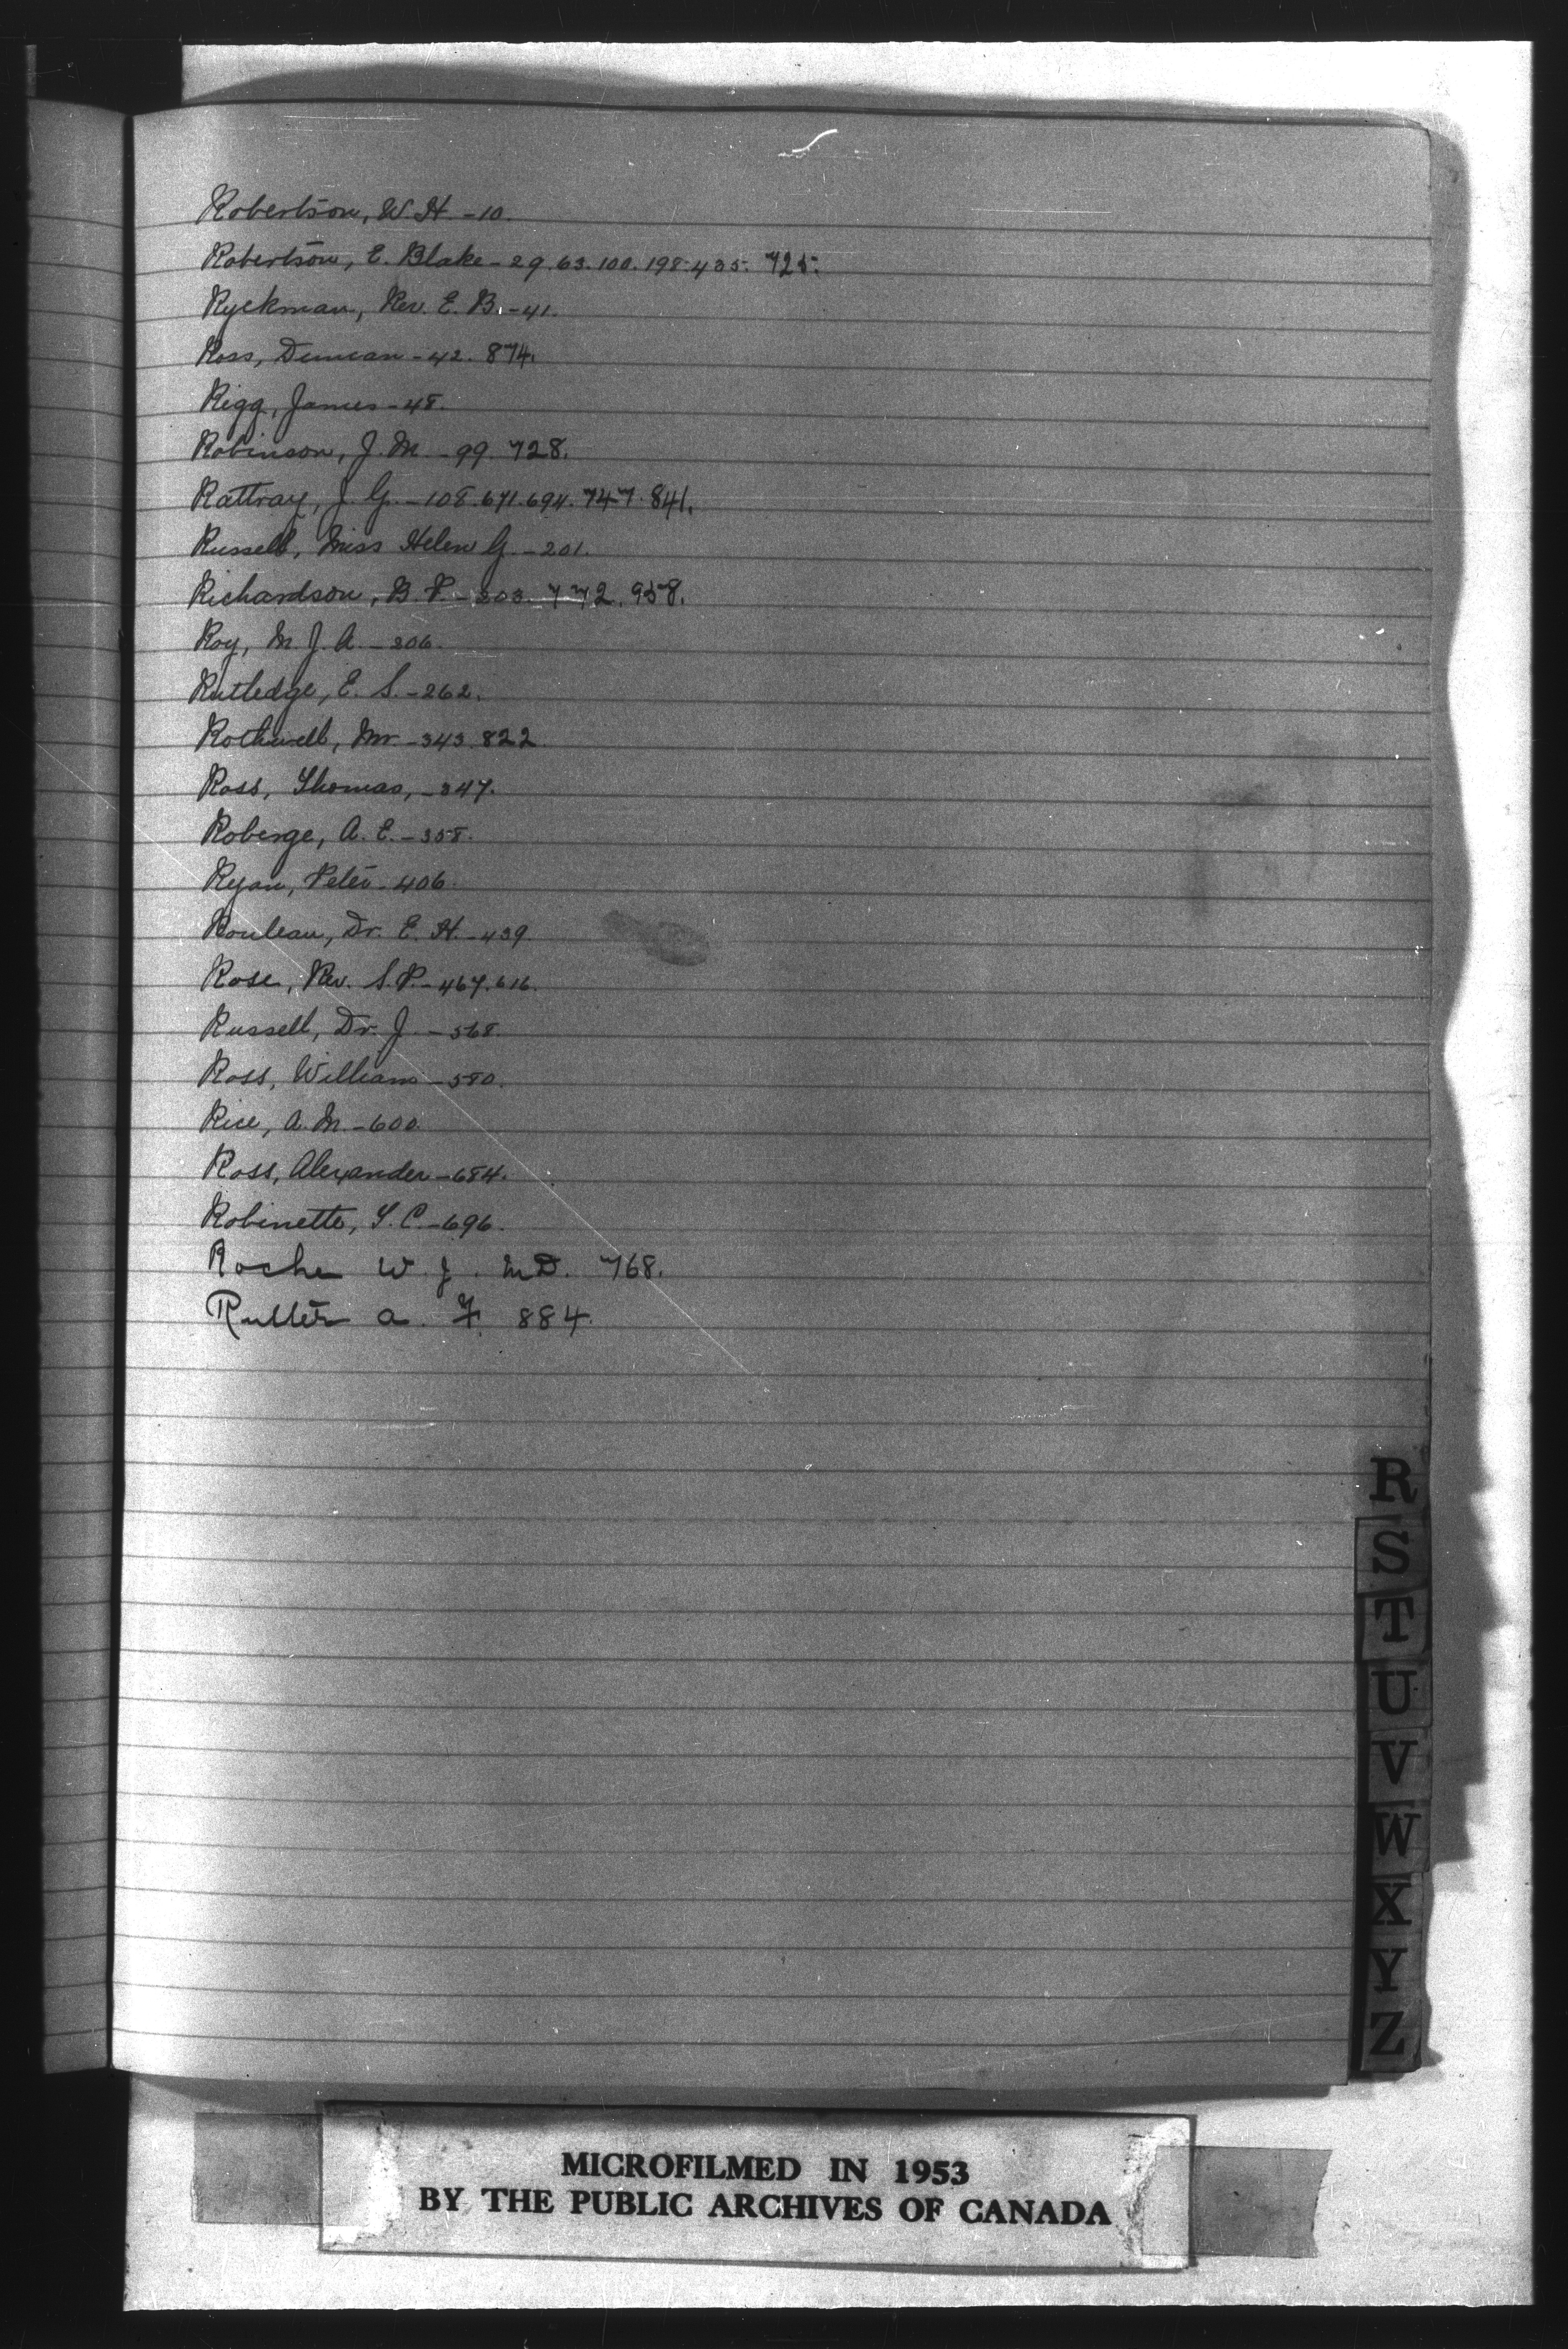 Robertson, W. H. - 10.
Robertson, E. Blake - 29. 63. 100. 198. 435. 725.
Ryckman, Rev. E. B. - 41.
Ross, Duncan - 42. 874.
Rigg, James - 48.
Robinson, J. M. - 99. 728.
Rattray, J. G. - 108. 671. 694. 747. 841.
Russell, Miss Helen G. - 201.
Richardson, B. P. - 203. 772. 958.
Roy, M. J. A. - 206.
Rutledge, E. S. - 262.
Rothwell, Mr - 343. 822.
Ross, Thomas, - 347.
Roberge, A. E. - 358.
Ryan, Peter - 406.
Rouleau, Dr. E. H. - 439.
Rose, Rev. S. P. - 467. 616.
Russell, Dr. J. - 568.
Ross, William - 580.
Rice, A. M. - 600.
Ross, Alexander - 684.
Robinette, T. C. - 696.
Roche W. J. M D. 768.
a. F. 884.
R
S
T
U
V
W
X
Y
Z
MICROFILMED IN 1953
BY THE PUBLIC ARCHIVES OF CANADA